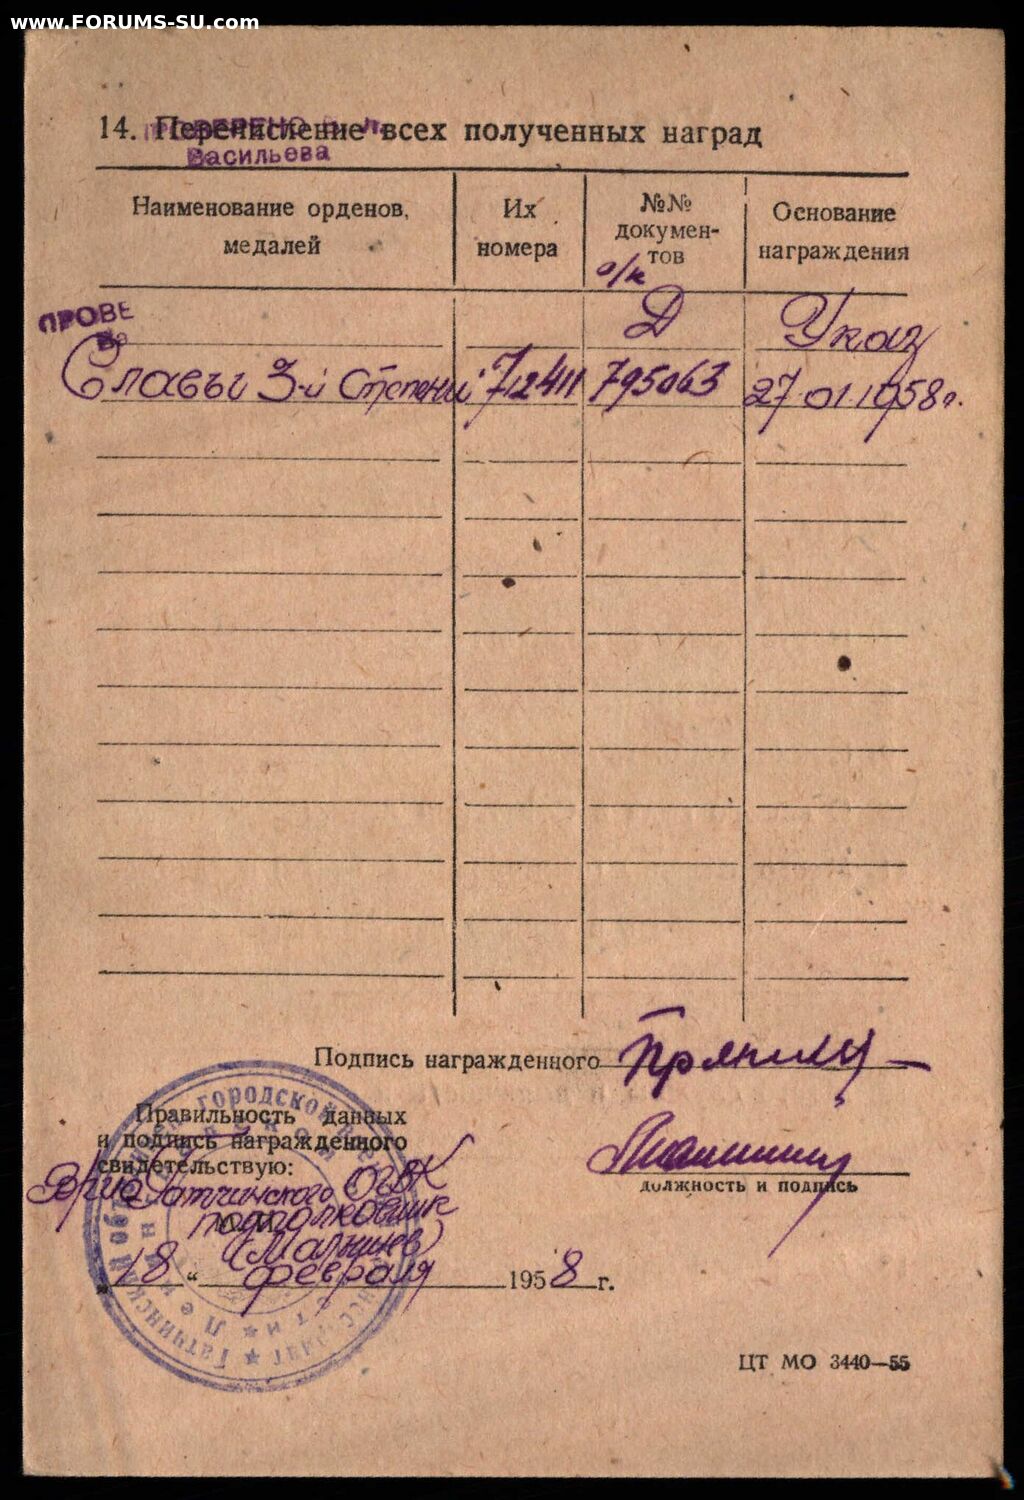 www.FORUMS-SU.com
14. Перечисление всех полученных наград
ПРОВЕРЕНО
Васильева
Наименование орденов, медалей
Их номера
№№ документов
о/к
Основание награждения
ПРОВЕ
Д Указ
Славы 3-й Степени 712411 795063 27.01.1958г.
Подпись награженного
Правильность данных
и подпись награжденного
свидетельствую:
Врио Гатчинского ОГВК
подполковник
(Малышев)
должность и подпись
„18“ февраля 1958 г.
ЦТ МО 3440—55